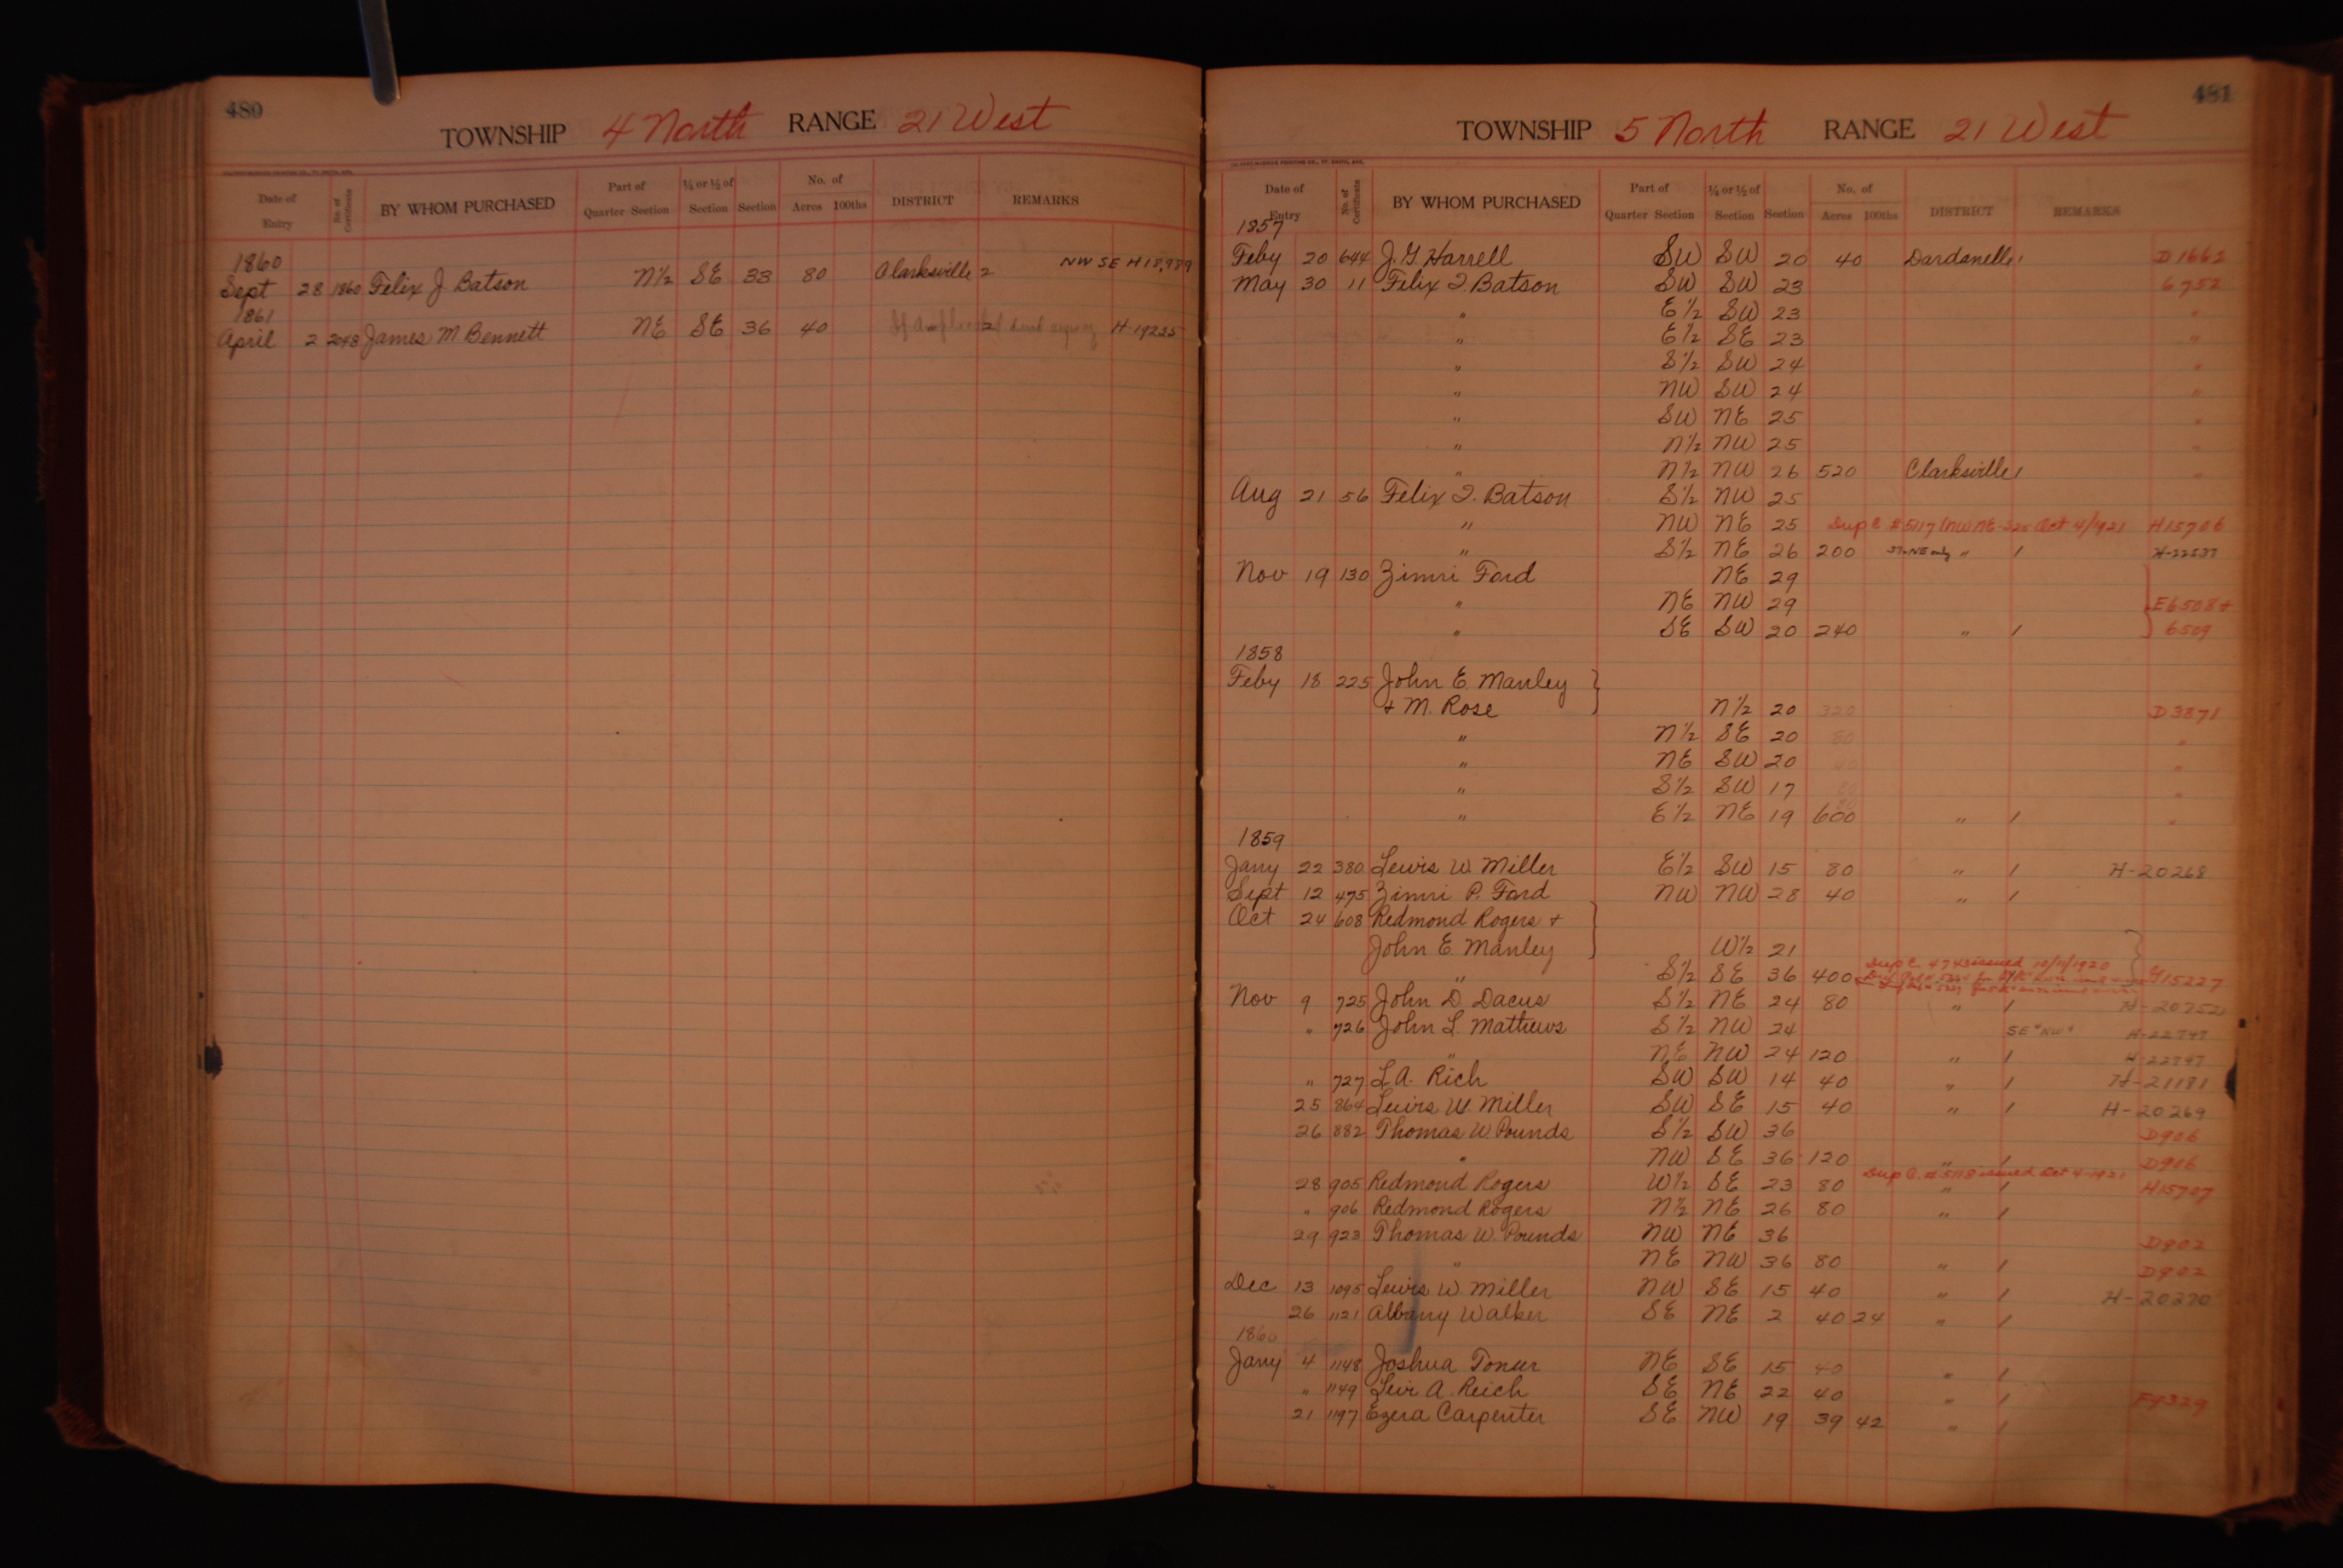 480
TOWNSHIP 4 North RANGE 21 West
Date of Entry No. of Certificate BY WHOM PURCHASED Part of Quarter Section ¼ or ½ of Section Section No. of Acres 100ths DISTRICT REMARKS
1860
Sept 28 1860 Felix J Batson N½ SE 33 80 Clarksville 2 NW SE H18,989
1861
April 2 2048 James M Bennett NE SE 36 40 2 H-19225
481
TOWNSHIP 5 North RANGE 21 West
Date of Entry No. of Certificate BY WHOM PURCHASED Part of Quarter Section ¼ or ½ of Section Section No. of Acres 100ths DISTRICT REMARKS
1857
Feby 20 644 J. G. Harrell SW SW 20 40 Dardanelle 1 D1662
May 30 11 Felix I. Batson SW SW 23 6752
" E½ SW 23 "
" E½ SE 23 "
" S½ SW 24 "
" NW SW 24 "
" SW NE 25 "
" N½ NW 25 "
" N½ NW 26 520 Clarksville 1 "
Aug 21 56 Felix I. Batson S½ NW 25
" NW NE 25 Dup C #5117 (NW NE S25 Oct 4/1921 H15706
" S½ NE 26 200 NE only " 1 H-22537
Nov 19 130 Zimri Ford NE 29
" NE NW 29 E6508 +
" SE SW 20 240 " 1 6509
1858
Feby 18 225 John E. Manley
+ M. Rose N½ 20 320 D3871
" N½ SE 20 80 "
" NE SW 20 40 "
" S½ SW 17 80 "
" E½ NE 19 80 600 " 1 "
1859
Jany 22 380 Lewis W. Miller E½ SW 15 80 " 1 H-20268
Sept 12 475 Zimri P. Ford NW NW 28 40 " 1
Oct 24 608 Redmond Rogers +
John E. Manley W½ 21
" S½ SE 36 400 Dup C issued 10/11/1920 H15227
Nov 9 725 John D. Dacus S½ NE 24 80 " 1 H-20252
" 726 John L. Mathews S½ NW 24 SE NW H-22747
" NE NW 24 120 " 1 H-22747
" 727 L A. Rich SW SW 14 40 " 1 H-21181
25 864 Lewis W. Miller SW SE 15 40 " 1 H-20269
26 882 Thomas W. Pounds S½ SW 36 D906
" NW SE 36 120 " 1 D906
28 905 Redmond Rogers W½ SE 23 80 Dup C. #5118 issued Oct 4-1921 " 1 H15707
" 906 Redmond Rogers N½ NE 26 80 " 1
29 923 Thomas W. Pounds NW NE 36 D902
" NE NW 36 80 " 1 D902
Dec 13 1095 Lewis W. Miller NW SE 15 40 " 1 H-20270
26 1121 Albany Walker SE NE 2 40 24 " 1
1860
Jany 4 1148 Joshua Toner NE SE 15 40 " 1
" 1149 Levi A. Reich SE NE 22 40 " 1 F9329
21 1197 Ezera Carpenter SE NW 19 39 42 " 1